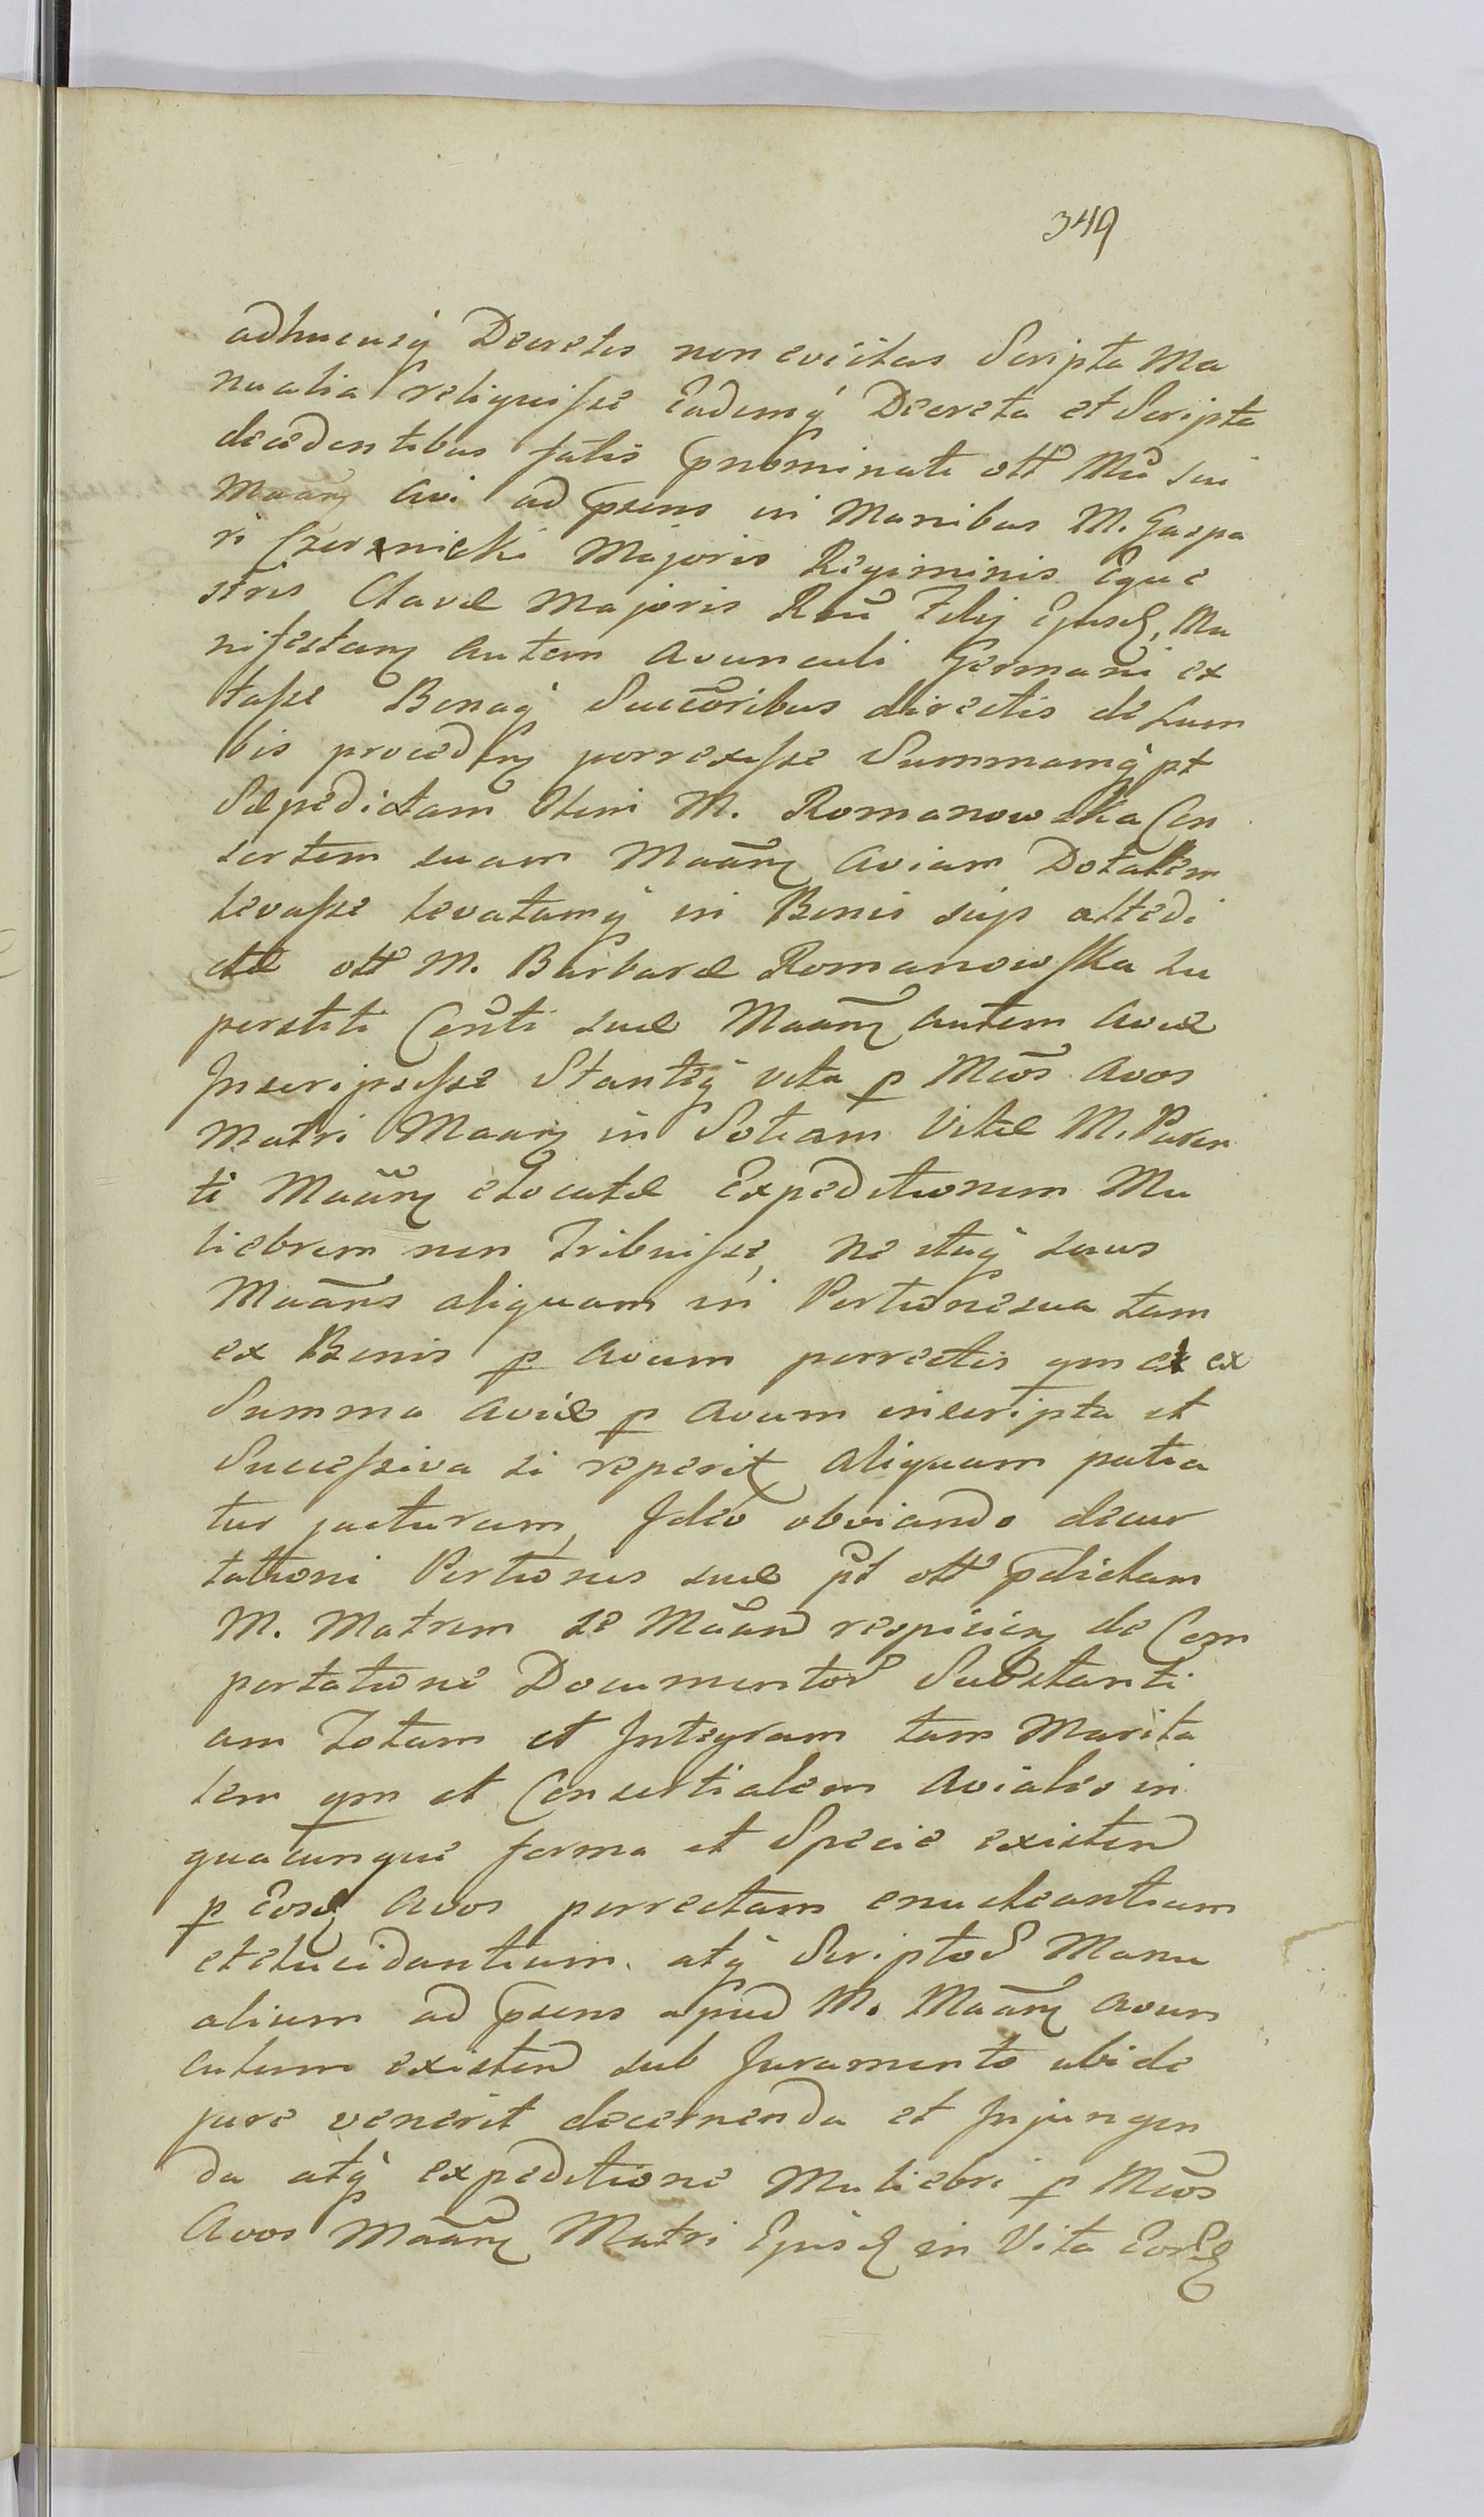 349
adhucusq Decretis non evictas Scripta Ma
nualia reliquisse Eademq Decreta et Scripta
decedentibus fatis pnominati ott Mci sui
Maan Avi ad psens in Manibus M. Gaspa
ri Czerxnicki Majoris Regiminis Eque
stris Clavæ Majoris Rni Filij Ejusd, Ma
nifestan autem Avunculi Germani ex
tasse Bonaq Succoribus directis de Lum
bis proceden porrexisse Summamq pt
Sæpedictam Olim M. Romanowska Con
sortem suam Maan Aviam Dotalem
levasse levatamq in Bonis suis attedi
ctæ ott M. Barbaræ Romanowska Su
perstiti Conti suæ Maan autem Aviæ
Inscripsisse Stanteq vita p Mcos Avos
Matri Maan in Sotiam Vitæ M. Paren
ti Maan elocatæ Expeditionem Mu
liebrem non Tribuisse, ne itaq suus
Maans aliquam in Portione sua tam
ex Bonis p Avum porrectis qm et ex
Summa Aviæ p Avum inscripta et
Successiva si reperit aliquam patia
tur jacturam, Ideo obviando decur
tationi Portionis suæ pt ott pdictam
M. Matrem se Maand respicien de Com
portatione Documentor Substanti
am Totam et Integram tam Marita
lem qm et Consortialem Avialis in
quacunque forma et Specie existend
p Eosd Avos porrectam enucleantium
et elucidantium atq Scriptor Manu
alium ad psens apud M. Maan Avun
culum existend sub Juramento ubi de
jure venerit decernenda et Injungen
da atq expeditione Muliebri p Mcos
Avos Maan Matri Ejusd in Vita Eord